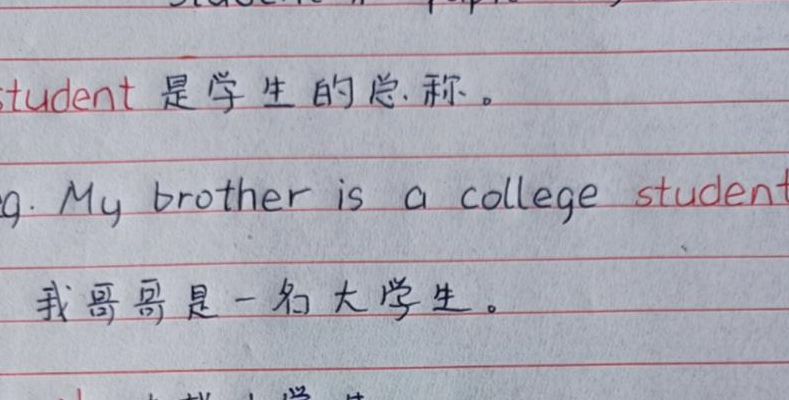 student 是学生的总称。
eg. My brother is a college student
我哥哥是一名大学生。